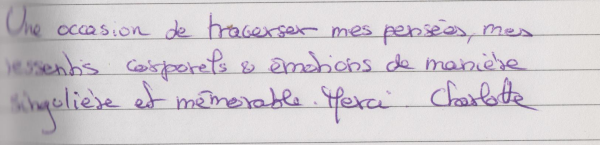 Une occasion de traverser mes pensées, mes
ressentis corporels & émotions de manière
singulière et mémorable. Merci. Charlotte